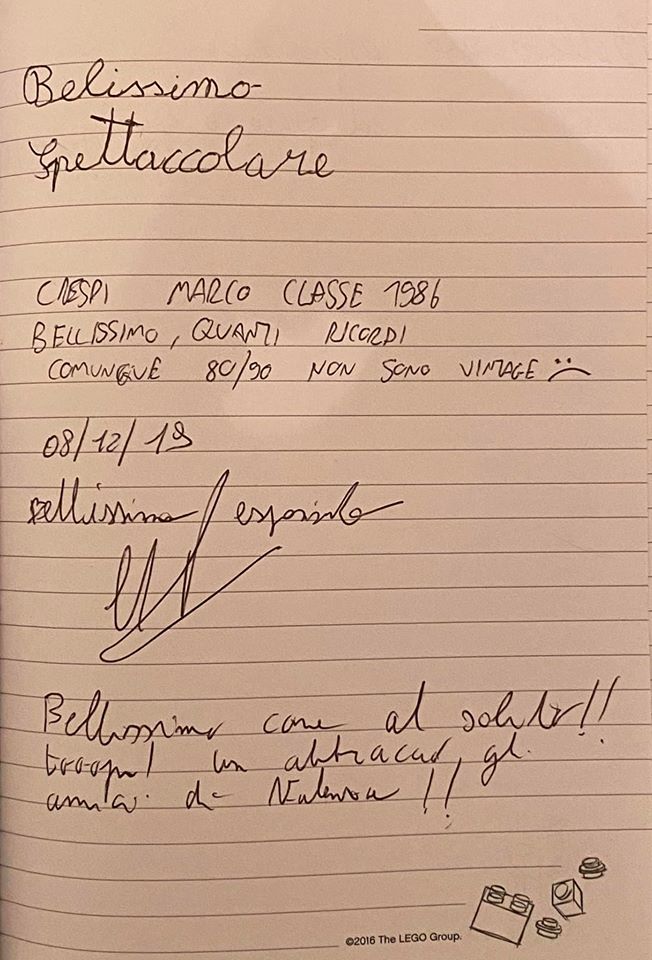 Belissimo
Spettaccolare
CRESPI MARCO CLASSE 1986
BELLISSIMO, QUANTI RICORDI
COMUNQUE 80/90 NON SONO VINTAGE :(
08/12/19
Bellissima
Bellissimo come al solito!!
un abbraccio, gli
amici di !!
©2016 The LEGO Group.